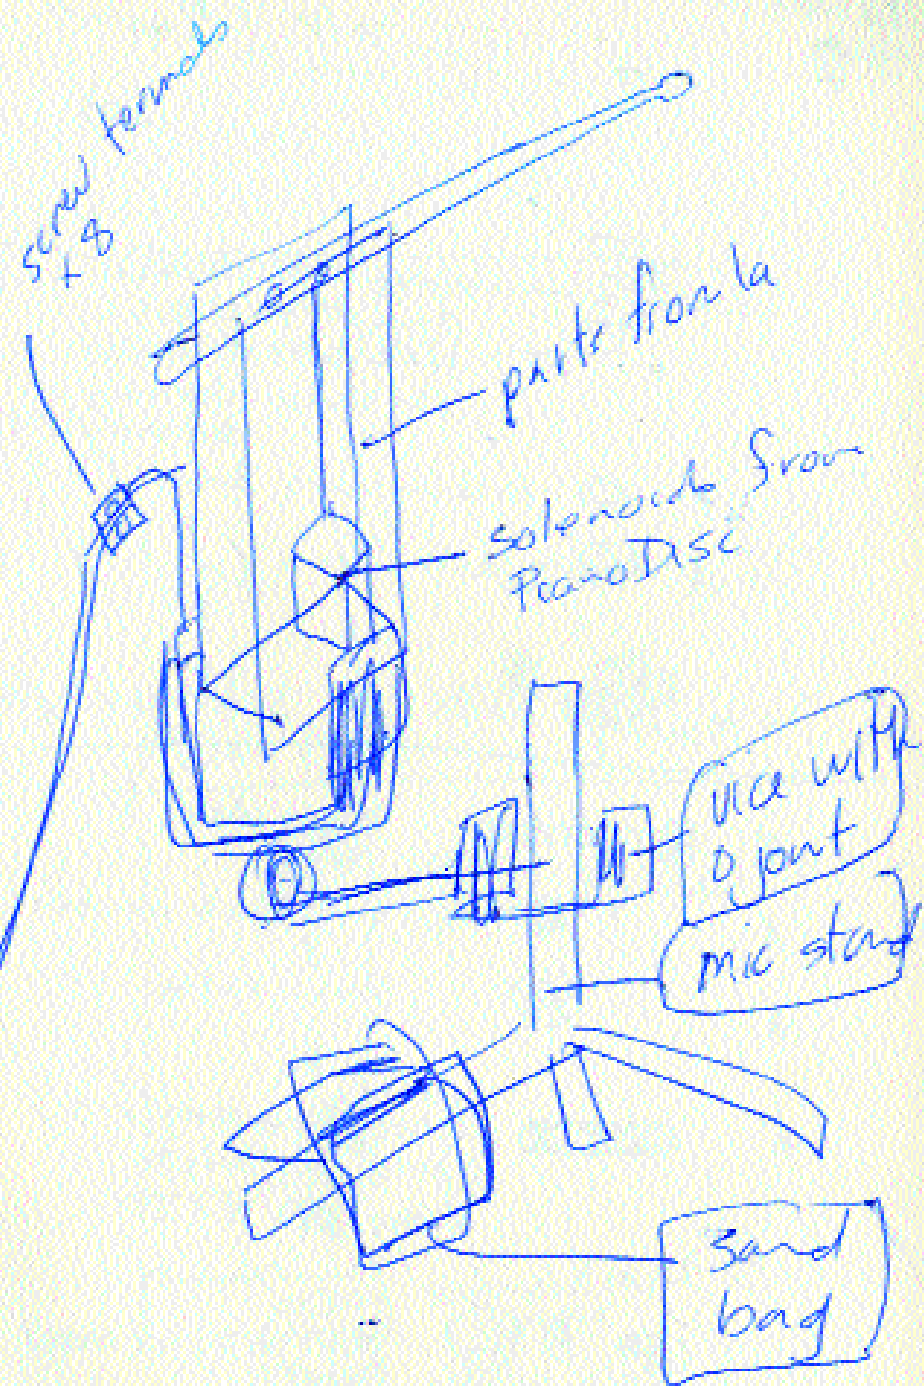 screw terminals
x 8
parts from la
Solenoids from
PianoDisc
vice with
o joint
mic stand
Sand
bag